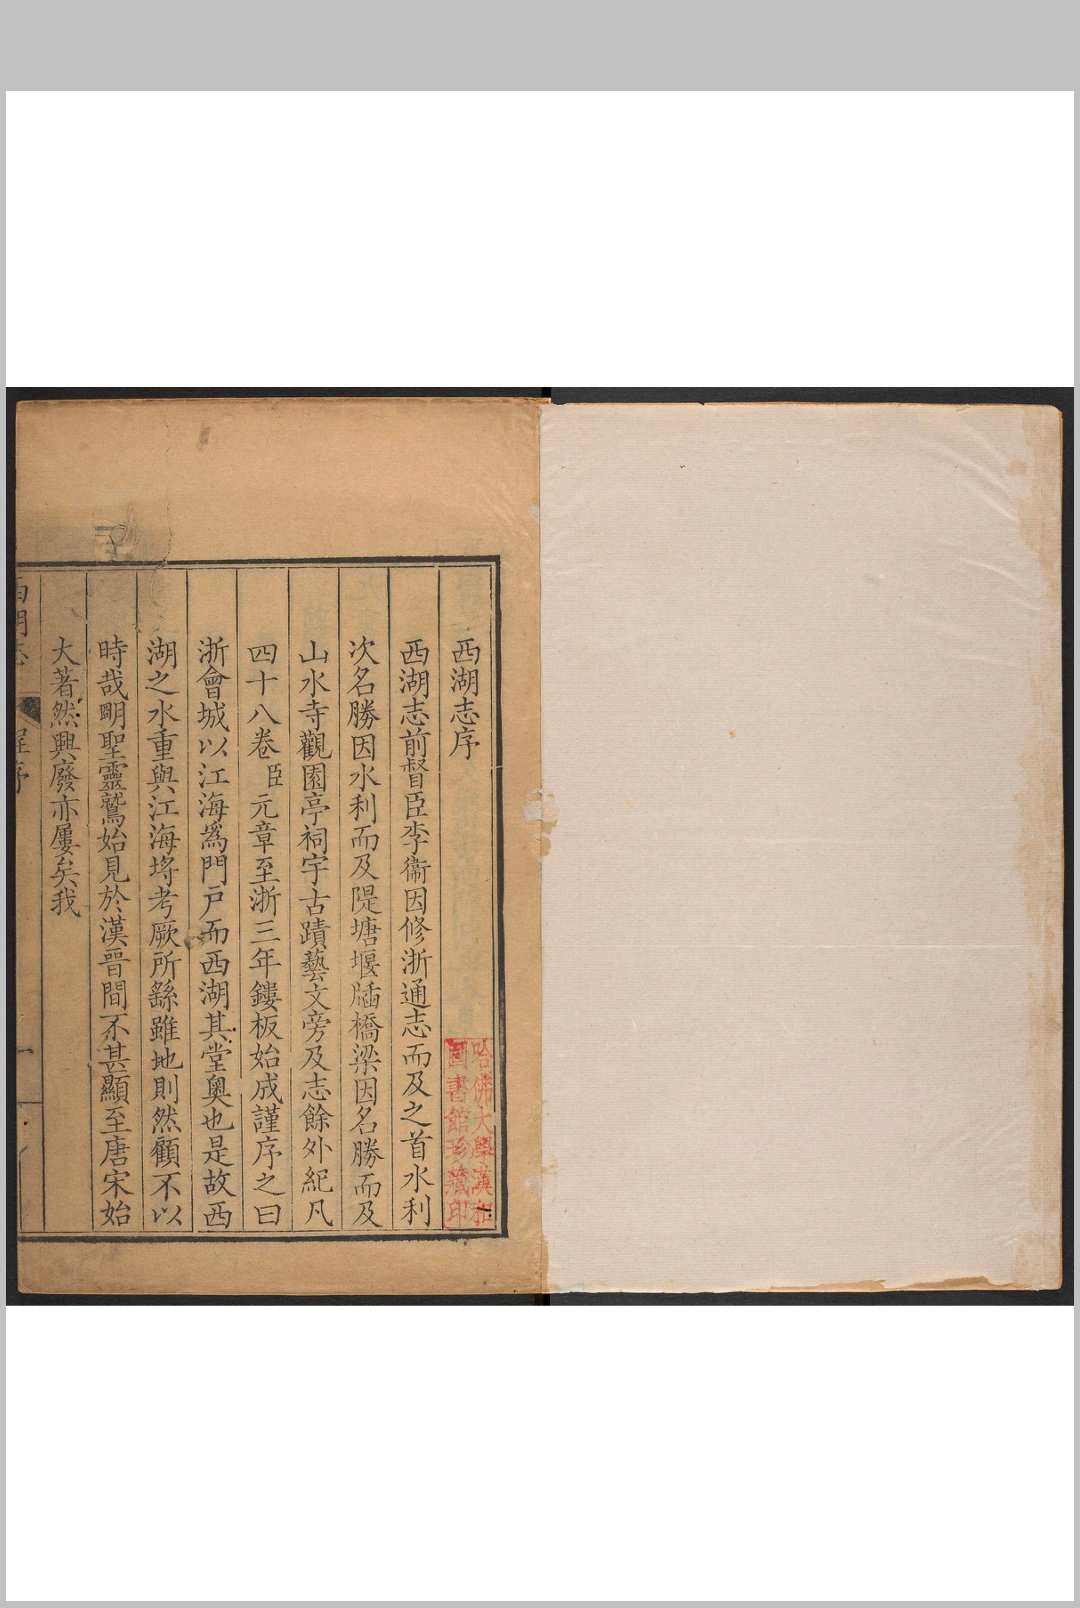 西湖志序
哈佛大學漢和
圖書館珍藏印
西湖志前督臣李衞因修浙通志而及之首水利
次名勝因水利而及隄塘堰牐橋梁因名勝而及
山水寺觀園亭祠宇古蹟藝文旁及志餘外紀凡
四十八卷臣元章至浙三年鏤板始成謹序之曰
浙會城以江海爲門戶而西湖其堂奧也是故西
湖之水重與江海埒考厥所繇雖地則然顧不以
時哉明聖靈鷲始見於漢晉間不甚顯至唐宋始
大著然興廢亦屢矣我
西湖志
程序
一